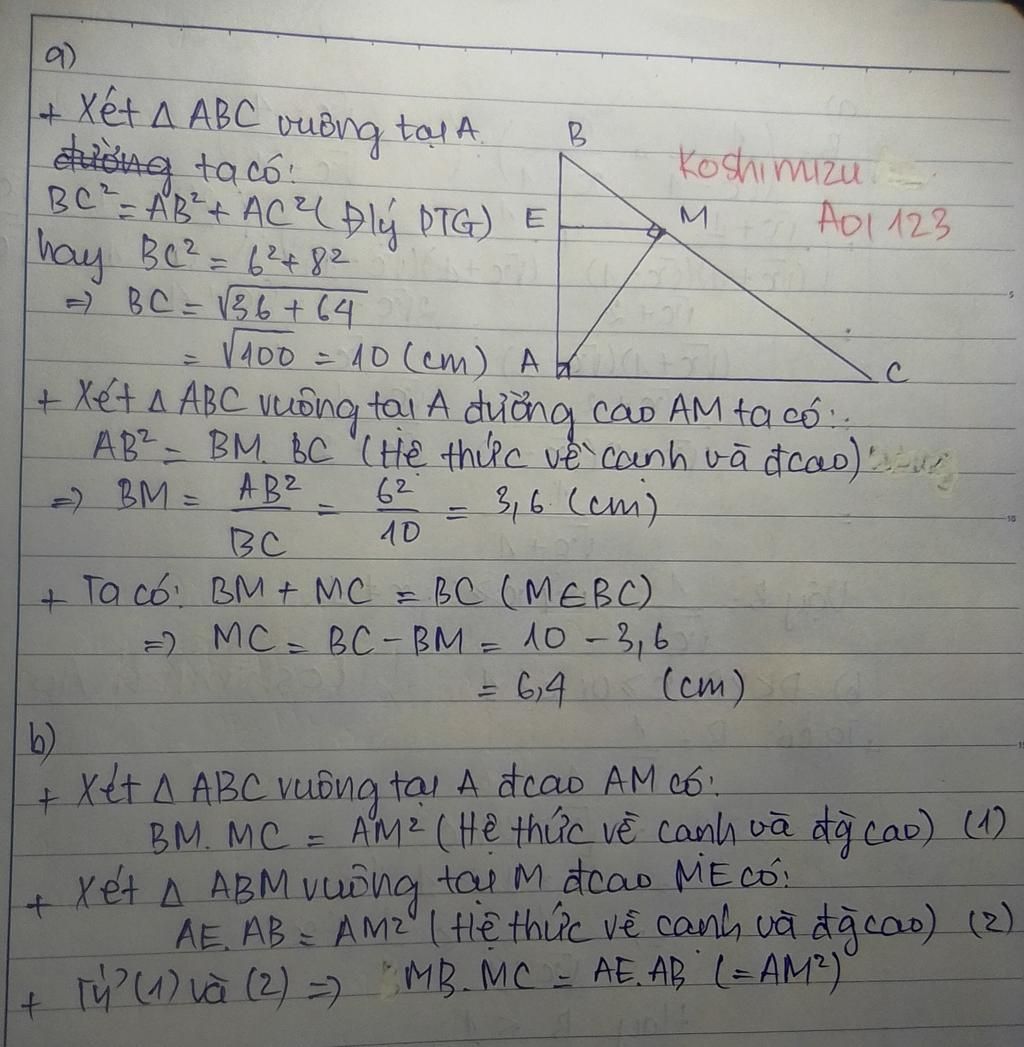 a)
+ Xét Δ ABC vuông tại A.
đường ta có:
BC² = AB² + AC² (Đlý PTG)
hay BC² = 6² + 8²
=> BC = √36 + 64
= √100 = 10 (cm)
B
E
M
A
C
Koshimizu
AOI 123
+ Xét Δ ABC vuông tại A đường cao AM ta có:
AB² = BM. BC (Hệ thức về cạnh và đcao)
=> BM = AB²/BC = 6²/10 = 3,6 (cm)
+ Ta có: BM + MC = BC (M∈BC)
=> MC = BC - BM = 10 - 3,6
= 6,4 (cm)
b)
+ Xét Δ ABC vuông tại A đcao AM có:
BM. MC = AM² (Hệ thức về cạnh và đg cao) (1)
+ Xét Δ ABM vuông tại M đcao ME có:
AE. AB = AM² (Hệ thức về cạnh và đg cao) (2)
+ Từ (1) và (2) => MB. MC = AE. AB (=AM²)